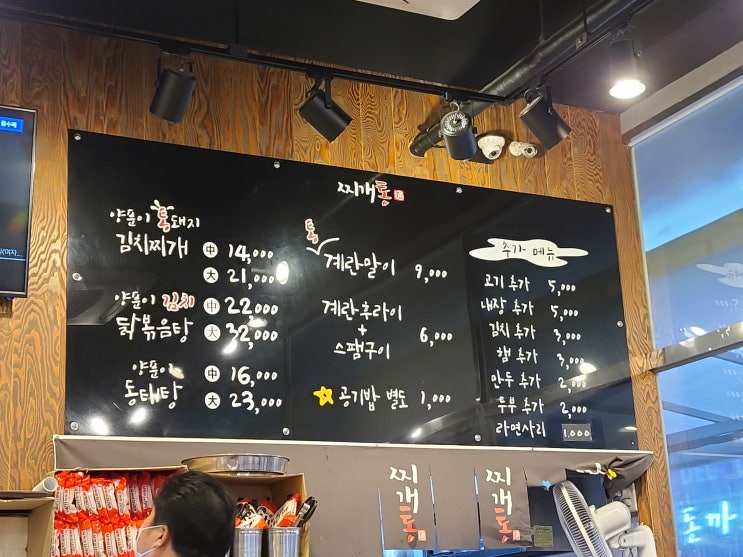 찌개통
양푼이 통돼지
김치찌개 中 14,000
大 21,000
양푼이 김치 中 22,000
닭볶음탕 大 32,000
양푼이 中 16,000
동태탕 大 23,000
통
계란말이 9,000
계란후라이
+
스팸구이 6,000
공기밥 별도 1,000
추가 메뉴
고기 추가 5,000
내장 추가 5,000
김치 추가 3,000
햄 추가 3,000
만두 추가 2,000
두부 추가 2,000
라면사리 1,000
찌개통
찌개통
돈까